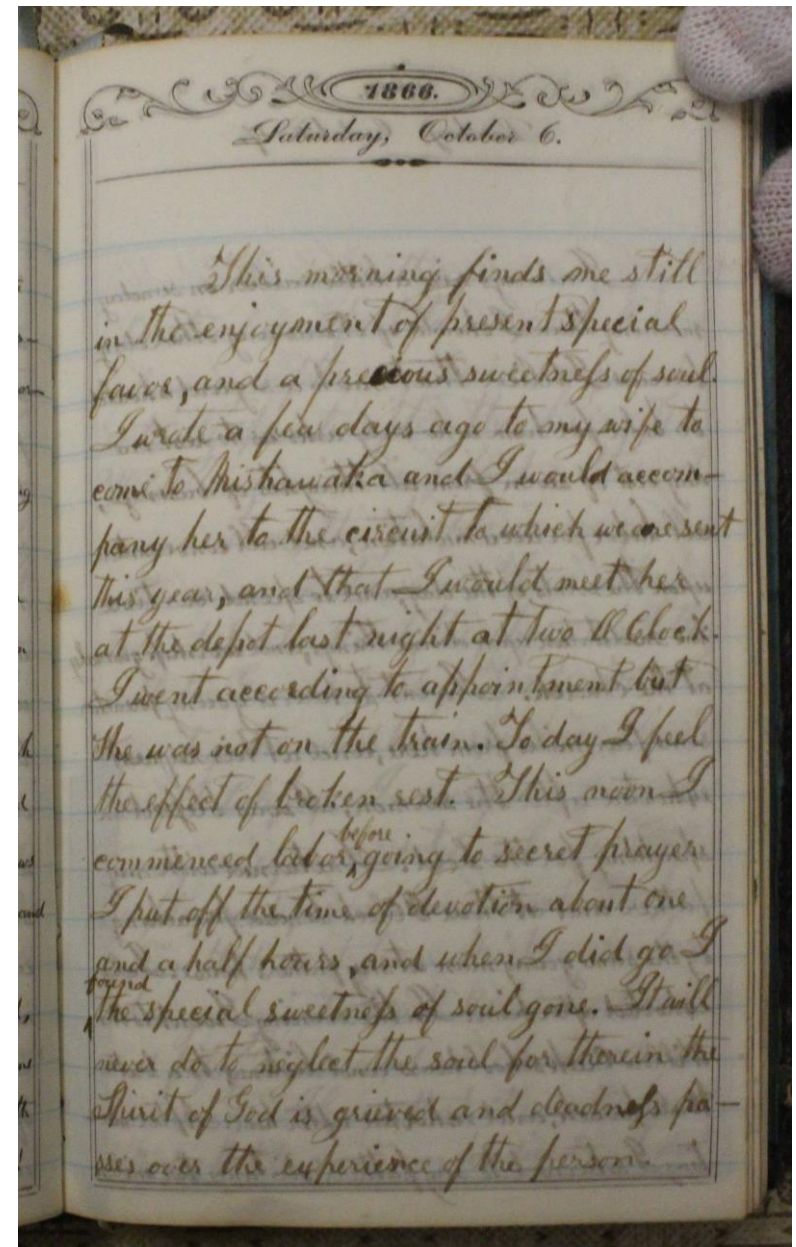 1866.
Saturday, October 6.
This morning finds me still
in the enjoyment of present special
favor, and a precious sweetness of soul.
I wrote a few days ago to my wife to
come to Mishawaka and I would accom-
pany her to the circuit to which we are sent
this year, and that I would meet her
at the depot last night at two O Clock.
I went according to appointment but
she was not on the train. To day I feel
the effect of broken rest. This noon I
before
commenced labor, going to secret prayer
I put off the time of devotion about one
and a half hours, and when I did go I
found
the special sweetness of soul gone. It will
never do to neglect the soul for therein the
Spirit of God is grieved and deadness pa-
sses over the experience of the person.